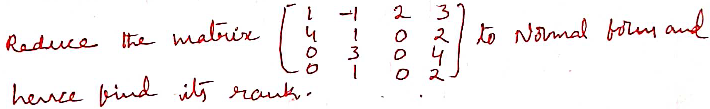 Reduce the matrix [1 -1 2 3
4 1 0 2
0 3 0 4
0 1 0 2] to Normal form and
hence find its rank.